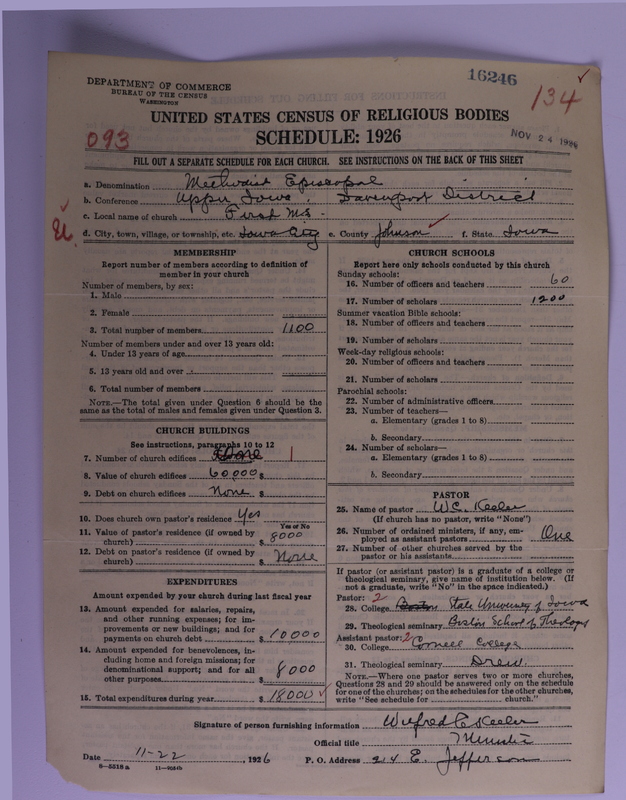 16246
134
DEPARTMENT OF COMMERCE
BUREAU OF THE CENSUS
WASHINGTON
UNITED STATES CENSUS OF RELIGIOUS BODIES
SCHEDULE: 1926
093
NOV 24 1926
FILL OUT A SEPARATE SCHEDULE FOR EACH CHURCH. SEE INSTRUCTIONS ON THE BACK OF THIS SHEET
a. Denomination Methodist Episcopal
b. Conference Upper Iowa, Davenport District
c. Local name of church First M.E.
d. City, town, village, or township, etc. Iowa City e. County Johnson f. State Iowa
MEMBERSHIP
Report number of members according to definition of
member in your church
Number of members, by sex:
1. Male
2. Female
3. Total number of members 1100
Number of members under and over 13 years old:
4. Under 13 years of age
5. 13 years old and over
6. Total number of members
NOTE.—The total given under Question 6 should be the
same as the total of males and females given under Question 3.
CHURCH BUILDINGS
See instructions, paragraphs 10 to 12
7. Number of church edifices 1
8. Value of church edifices 60,000 $
9. Debt on church edifices None $
10. Does church own pastor's residence Yes
Yes or No
11. Value of pastor's residence (if owned by
church) $ 8000
12. Debt on pastor's residence (if owned by
church) $ None
EXPENDITURES
Amount expended by your church during last fiscal year
13. Amount expended for salaries, repairs,
and other running expenses; for im-
provements or new buildings; and for
payments on church debt $ 10,000
14. Amount expended for benevolences, in-
cluding home and foreign missions; for
denominational support; and for all
other purposes $ 8000
15. Total expenditures during year $ 18000
CHURCH SCHOOLS
Report here only schools conducted by this church
Sunday schools:
16. Number of officers and teachers 60
17. Number of scholars 1200
Summer vacation Bible schools:
18. Number of officers and teachers
19. Number of scholars
Week-day religious schools:
20. Number of officers and teachers
21. Number of scholars
Parochial schools:
22. Number of administrative officers
23. Number of teachers—
a. Elementary (grades 1 to 8)
b. Secondary
24. Number of scholars—
a. Elementary (grades 1 to 8)
b. Secondary
PASTOR
25. Name of pastor W.C. Keeler
(If church has no pastor, write "None")
26. Number of ordained ministers, if any, em-
ployed as assistant pastors One
27. Number of other churches served by the
pastor or his assistants
If pastor (or assistant pastor) is a graduate of a college or
theological seminary, give name of institution below. (If
not a graduate, write "No" in the space indicated.)
Pastor: 2
28. College Boston State University of Iowa
29. Theological seminary Boston School of Theology
Assistant pastor: 2
30. College Cornell College
31. Theological seminary Drew
NOTE.—Where one pastor serves two or more churches,
Questions 28 and 29 should be answered only on the schedule
for one of the churches; on the schedules for the other churches,
write "See schedule for church."
Signature of person furnishing information Wilfred C Keeler
Official title Minister
Date 11-22, 1926 P. O. Address 214 E. Jefferson
8-5518a 11-9264b